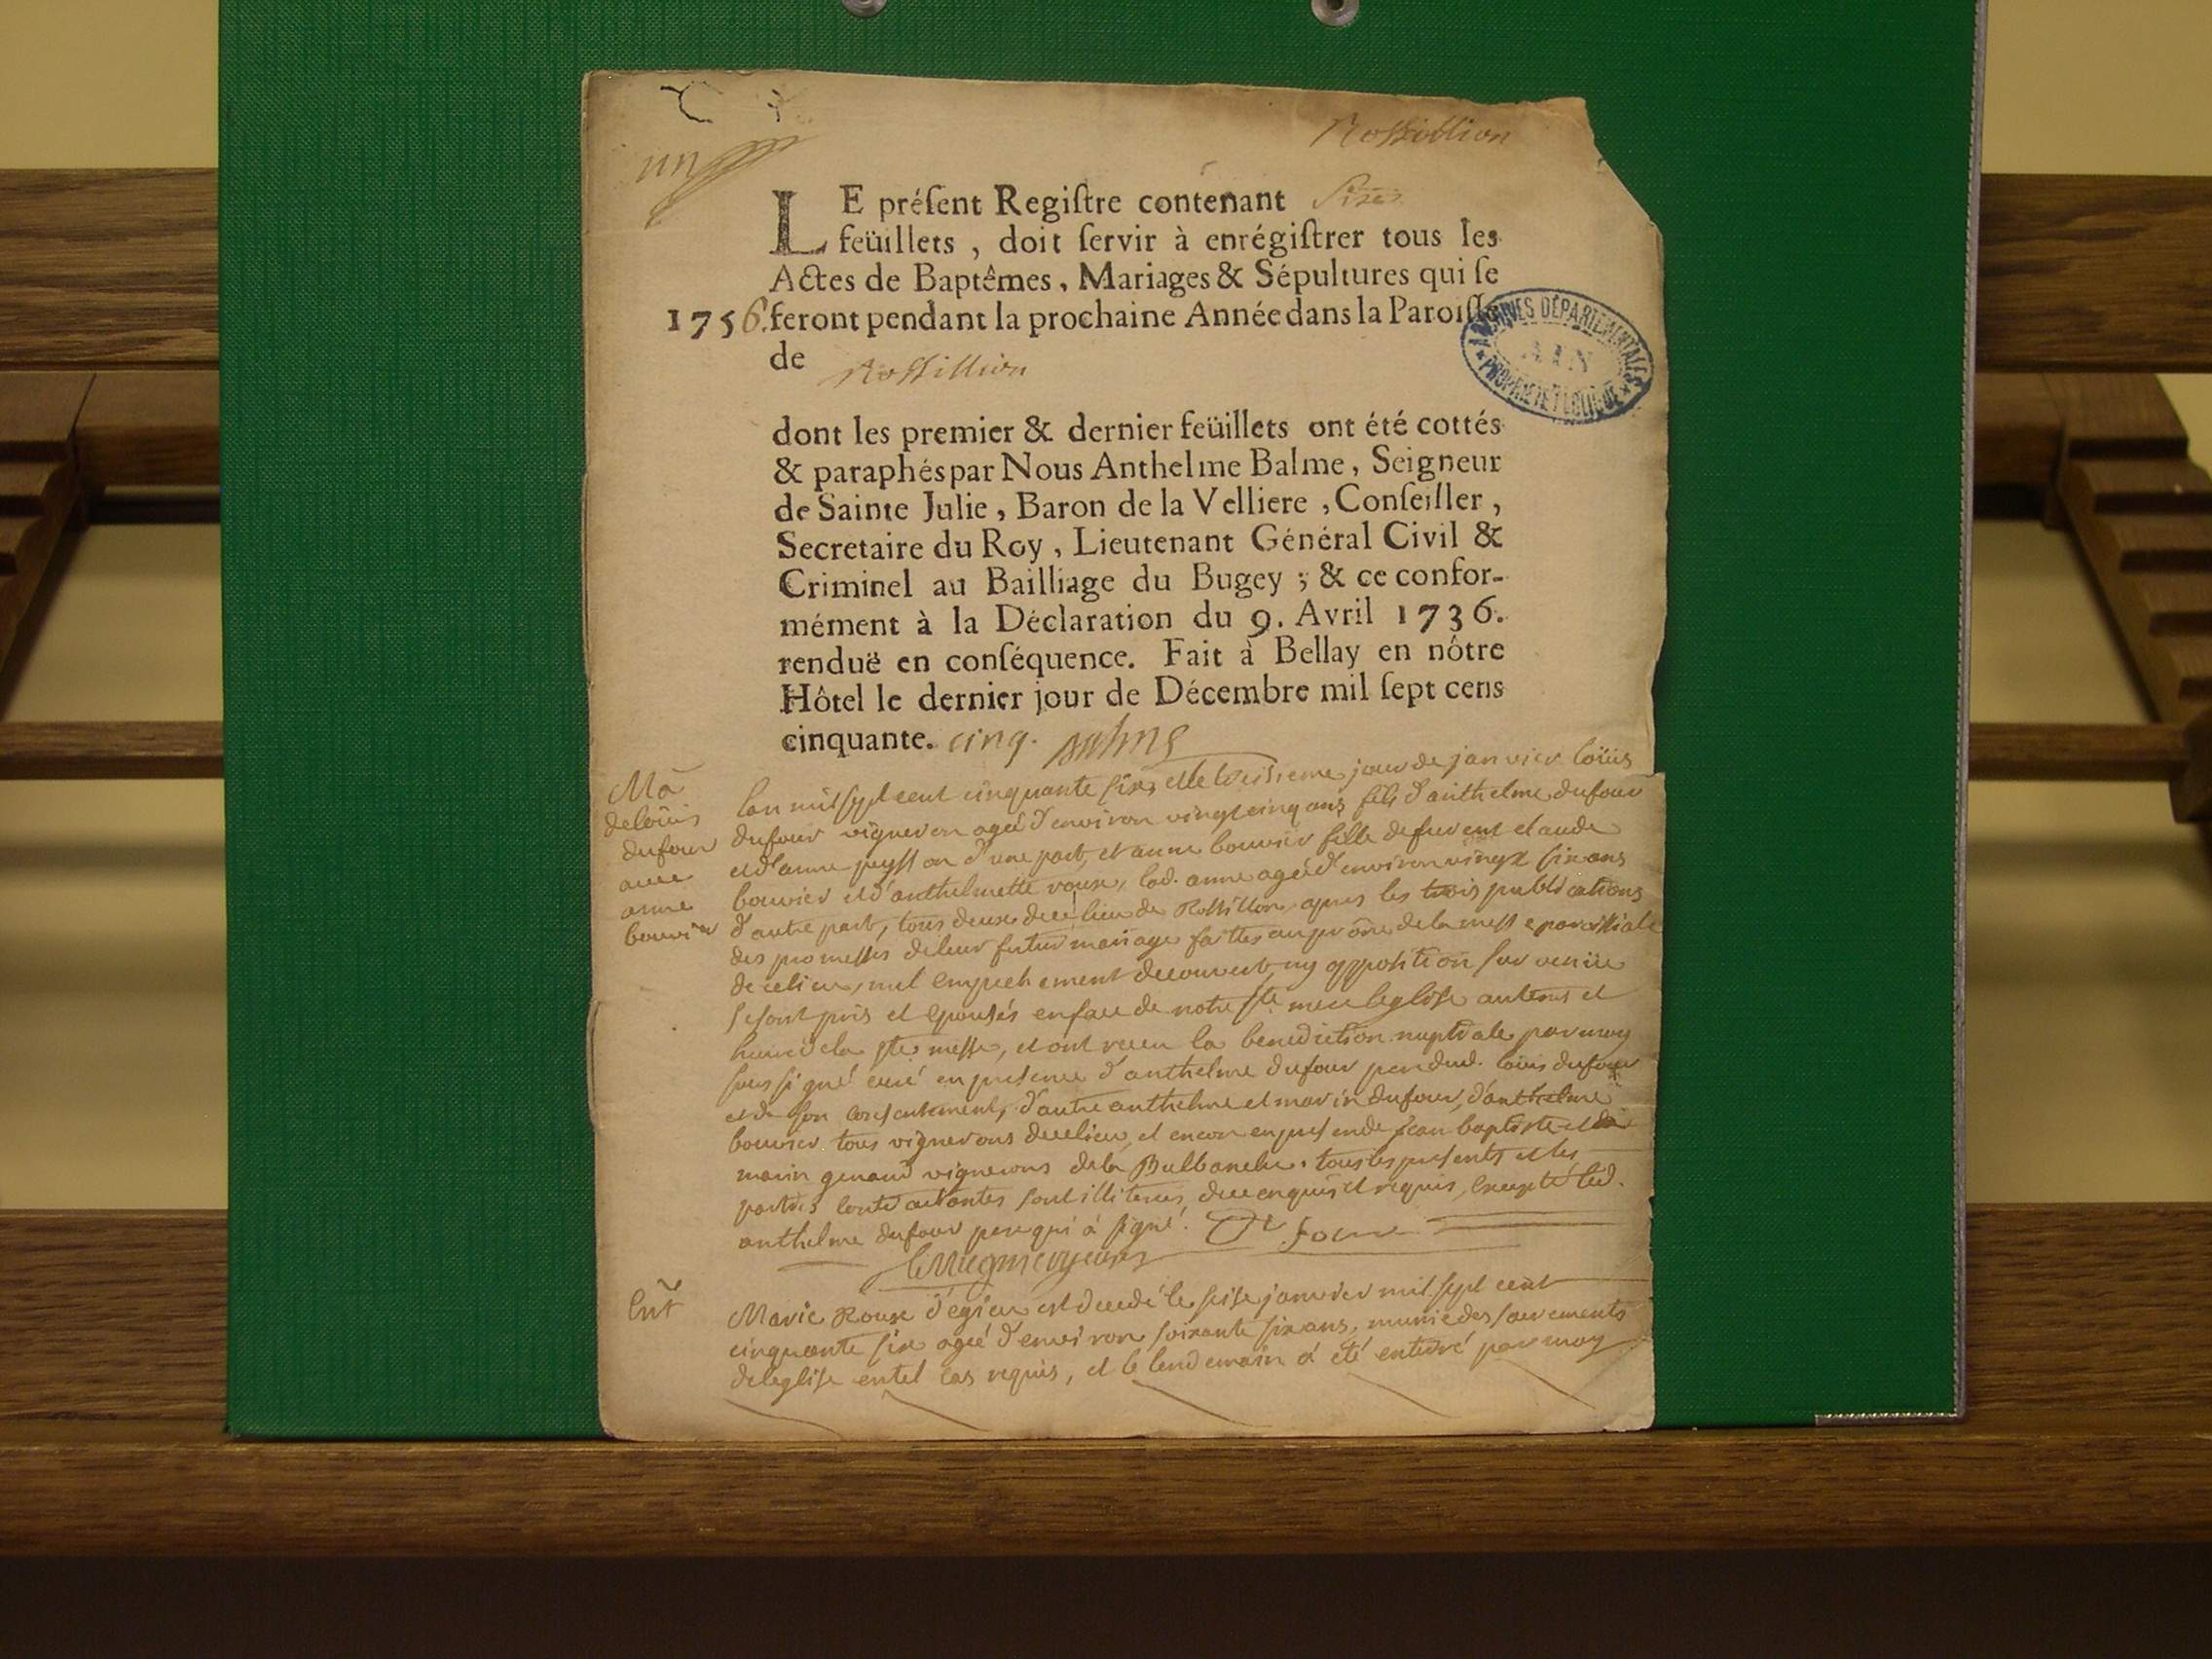 un
Rossillion
LE préſent Regiſtre contenant Six
feüillets, doit ſervir à enrégiſtrer tous les
Actes de Baptêmes, Mariages & Sépultures qui ſe
1756. feront pendant la prochaine Année dans la Paroiſſe
de Rossillion
ARCHIVES DÉPARTEMENTALES
AIN
PROPRIÉTÉ PUBLIQUE
dont les premier & dernier feüillets ont été cottés
& paraphés par Nous Anthelme Balme, Seigneur
de Sainte Julie, Baron de la Velliere, Conſeiller,
Secretaire du Roy, Lieutenant Général Civil &
Criminel au Bailliage du Bugey ; & ce confor-
mément à la Déclaration du 9. Avril 1736.
renduë en conſéquence. Fait à Bellay en nôtre
Hôtel le dernier jour de Décembre mil ſept cens
cinquante. cinq. Balme
Ma
de loüis
dufour
avec
anne
bouvier
lan mil sept cent cinquante six, et le jour de janvier loüis
dufour vigneron ageé d'environ vingt cinq ans fils d'anthelme dufour
et d'anne peysson d'une part, et anne bouvier fille de claude
bouvier et d'anthelmette roux, lad. anne ageé d'environ vingt six ans
d'autre part, tous deux de ce lieu de Rossillon, apres les trois publications
des promesses de leur futur mariage faittes au prône de la messe paroissiale
de ce lieu, nul empechement decouvert, ny opposition survenüe
se sont pris et epousés en face de notre ste. mere leglise
la ste messe, et ont receu la benediction nuptiale par moy
soussigné curé en presence d'anthelme dufour pere dud. loüis dufour
et de son consentement, d'autre anthelme et marin dufour, d'anthelme
bouvier tous vignerons de ce lieu, et encor en presence de jean baptiste
marin genaud vignerons de la Balbanche. tous les presents et les
parties contractantes sont illiteres, de ce enquis et requis, excepté led.
anthelme dufour pere qui à signé.
Ent
Marie Roux d'egieu est decedé le seise janvier mil sept cent
cinquante six ageé d'environ soixante six ans, munie des sacrements
de leglise en tel cas requis, et le lendemain à été enterré par moy